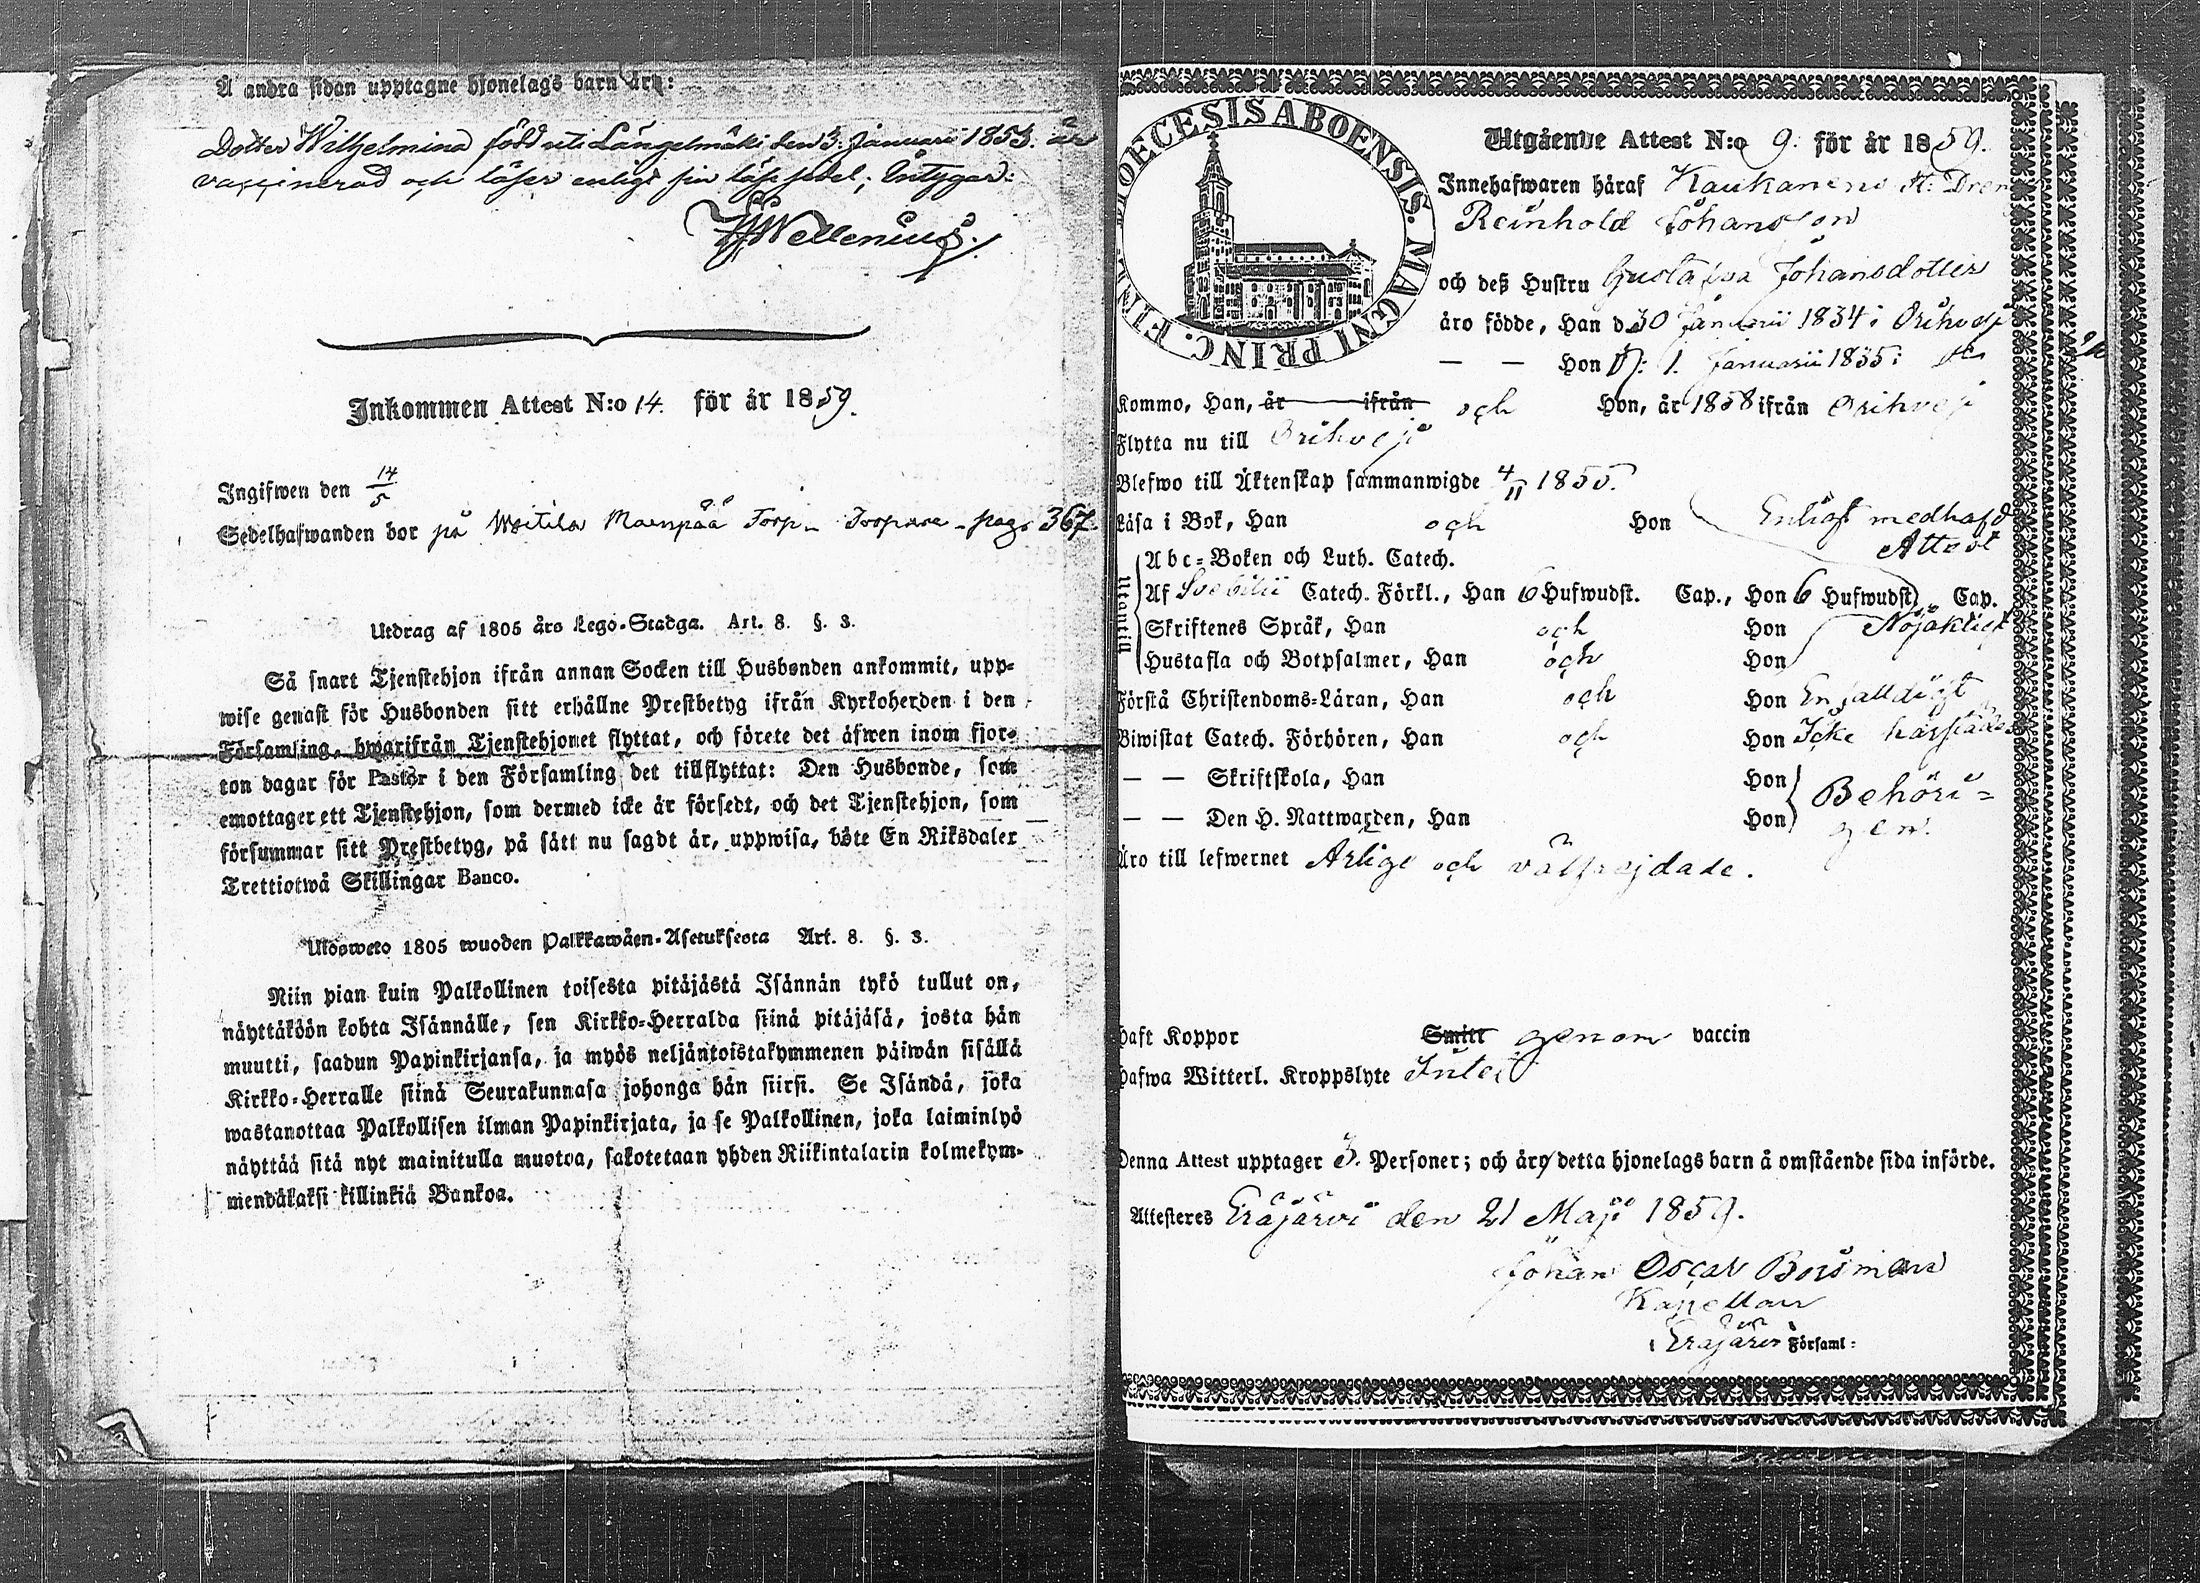 Å andra sidan upptagne hjonelags barn äro:
Dotter Wilhelmina född uti Längelmäki den 3: Januarii 1853. är
vaccinerad och läser enligt sin läse sedel; Intygar:
Wellenius.
Inkommen Attest N:o 14. för år 1859.
Ingifwen den 14/5
Sedelhafwanden bor på Maenpää Torp pag. 367.
Utdrag af 1805 års Lego-Stadga. Art. 8. §. 3.
Så snart Tjenstehjon ifrån annan Socken till Husbonden ankommit, upp-
wise genast för Husbonden sitt erhållne Prestbetyg ifrån Kyrkoherden i den
Församling, hwarifrån Tjenstehjonet flyttat, och förete det äfwen inom fjor-
ton dagar för Pastor i den Församling det tillflyttat: Den Husbonde, som
emottager ett Tjenstehjon, som dermed icke är försedt, och det Tjenstehjon, som
försummar sitt Prestbetyg, på sätt nu sagdt är, uppwisa, böte En Riksdaler
Trettiotwå Skillingar Banco.
Ulosweto 1805 wuoden Palkkawäen-Asetuksesta Art. 8. §. 3.
Niin pian kuin Palkollinen toisesta pitäjästä Isännän tykö tullut on,
näyttäköön kohta Isännälle, sen Kirkko-Herralda siinä pitäjäsä, josta hän
muutti, saadun Papinkirjansa, ja myös neljäntoistakymmenen päiwän sisällä
Kirkko-Herralle siinä Seurakunnasa johonga hän siirsi. Se Isändä, joka
wastanottaa Palkollisen ilman Papinkirjata, ja se Palkollinen, joka laiminlyö
näyttää sitä nyt mainitulla muotoa, sakotetaan yhden Riikintalarin kolmekym-
mendäkaksi killinkiä Bankoa.
DIOECESIS ABOENSIS. MAGNI PRINC. FINL.
Utgående Attest N:o 9. för år 1859.
Innehafwaren häraf Kaukanens
Reinhold Johansson
och deß Hustru Gustafva Johansdotter
äro födde, Han d. 30 Januarii 1834 i Orihvesi
— — Hon d: 1. Januarii 1835 i
Kommo, Han, år ifrån och Hon, år 1858 ifrån Orihvesi
Flytta nu till Orihvesi
Blefwo till Äktenskap sammanwigde 4/11 1855.
Läsa i Bok, Han och Hon Enligt medhafd
Attest
Utantill
Abc-Boken och Luth. Catech.
Af Svebilii Catech. Förkl., Han 6 Hufwudst. Cap., Hon 6 Hufwudst. Cap.
Skriftenes Språk, Han och Hon Nöjaktigt
Hustafla och Botpsalmer, Han och Hon
Förstå Christendoms-Läran, Han och Hon Enfalldigt
Biwistat Catech. Förhören, Han och Hon Icke härstädes
— — Skriftskola, Han Hon Behöri-
— — Den H. Nattwarden, Han Hon gen.
Äro till lefwernet Ärlige och välfrejdade.
Haft Koppor Smitt genom vaccin
Hafwa Witterl. Kroppslyte Intet
Denna Attest upptager 3. Personer; och äro detta hjonelags barn å omstående sida införde.
Attesteres Eräjärvi den 21 Maji 1859.
Johan Oscar Bosman
Kapellan
Eräjärvi Församl: